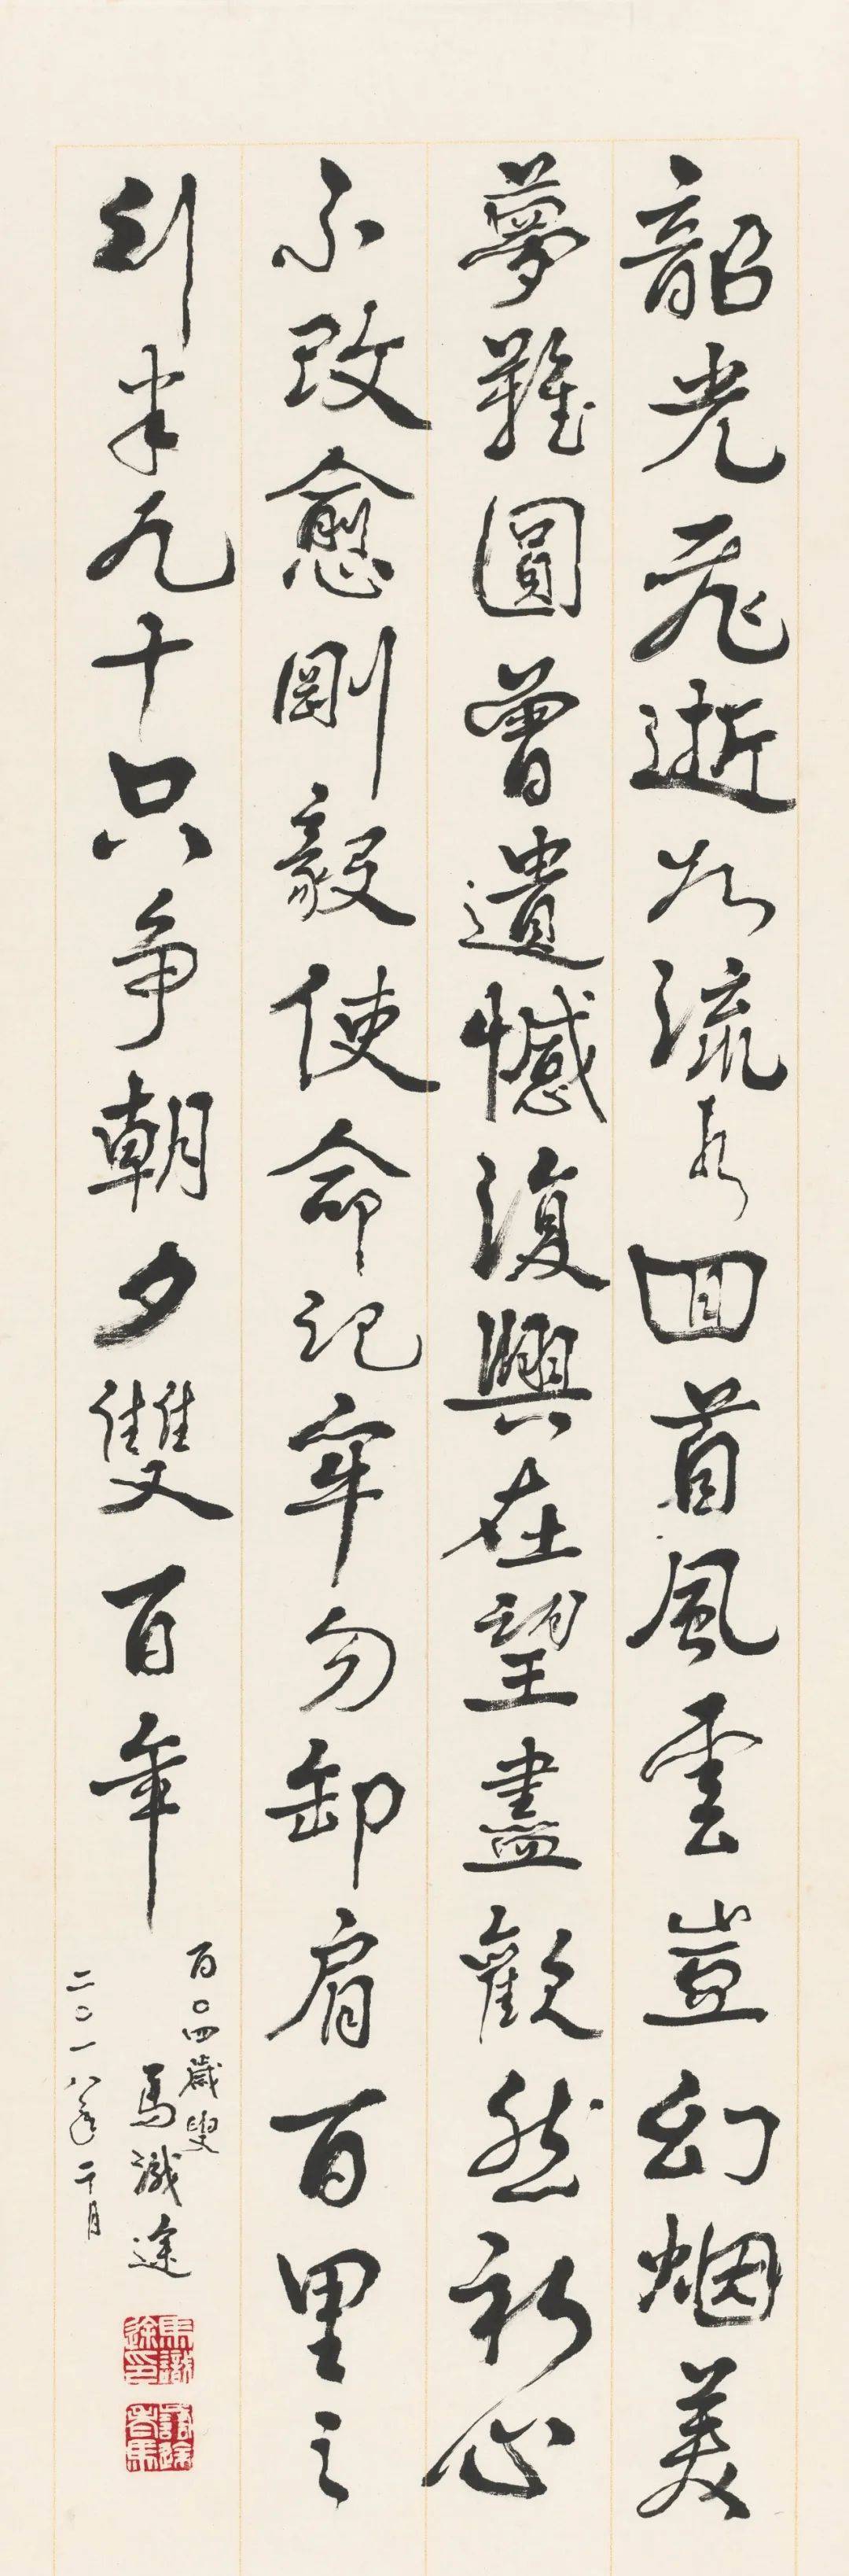 韶光飛逝如流水回首風雲豈幻烟美
夢難圓曾遺憾復興在望盡歡然初心
不改愈剛毅使命記牢勿卸肩百里之
行半九十只争朝夕雙百年
百〇四歲叟
馬識途
二〇一八年二月
馬識途印
識途老馬